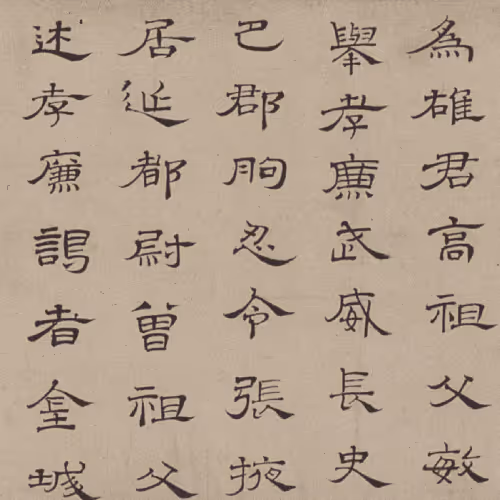 為雄君高祖父敏
舉孝廉武威長史
巴郡朐忍令張掖
居延都尉曾祖父
述孝廉謁者金城